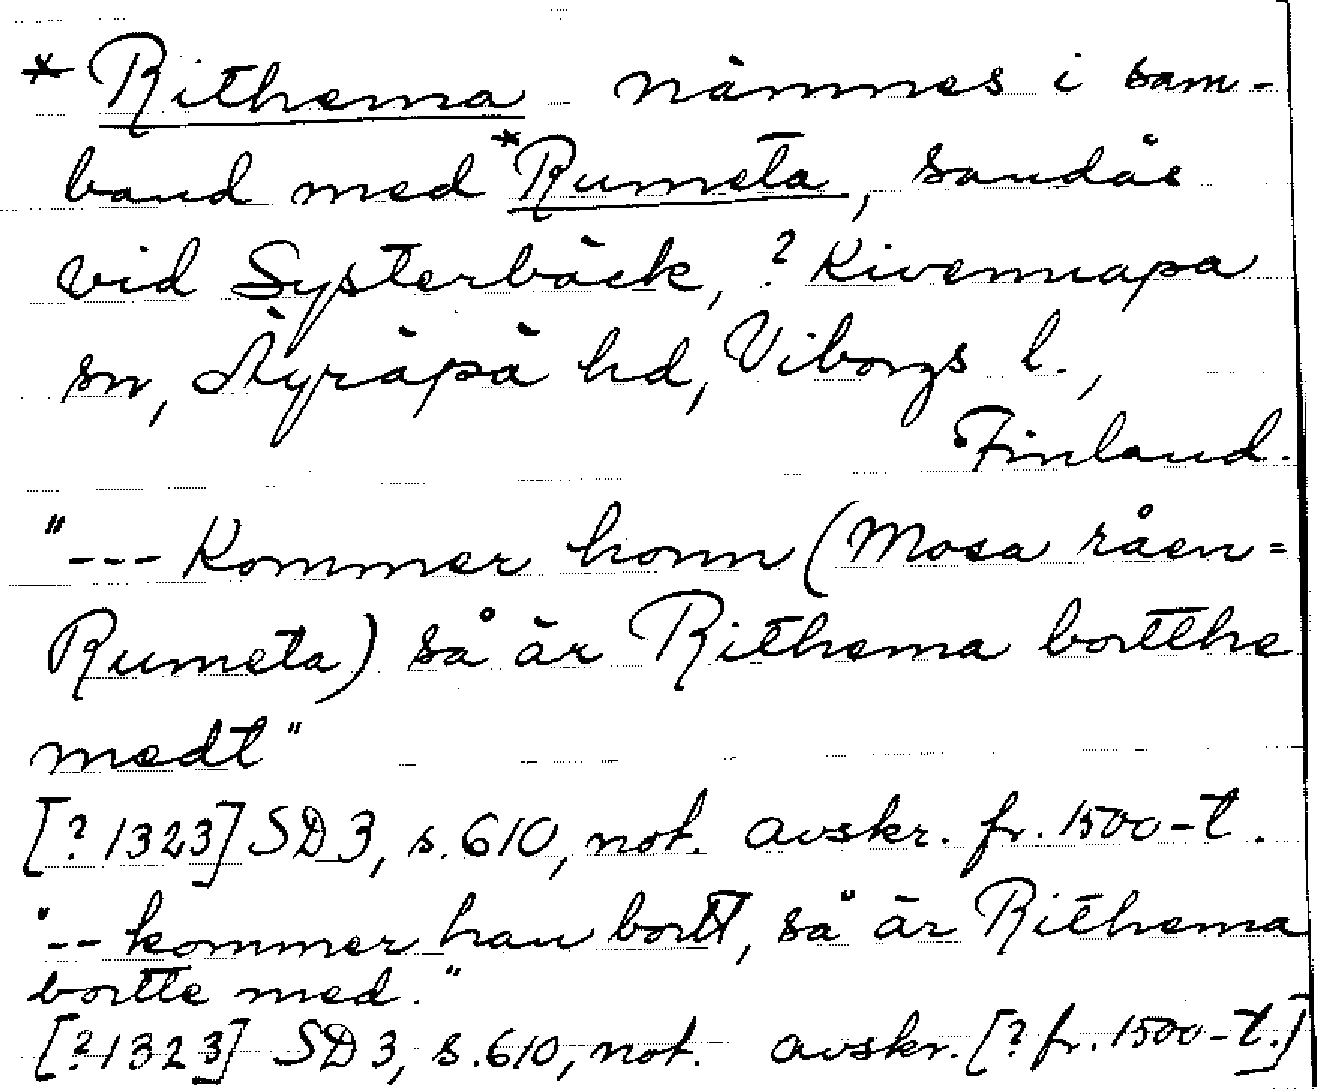 * Rithema nämnes i sam-
band med *Rumeta, sandås
vid Systerbäck, ? Kivennapa
sn, Äyräpä hd, Viborgs l.,
Finland.
"--- Kommer honn (Mosa råen=
Rumeta) så är Rithema bortthe
medt"
[? 1323] SD 3, s. 610, not. avskr. fr. 1500-t.
"-- kommer han bortt, så är Rithema
bortte med."
[? 1323] SD 3, s. 610, not. avskr. [? fr. 1500-t.]